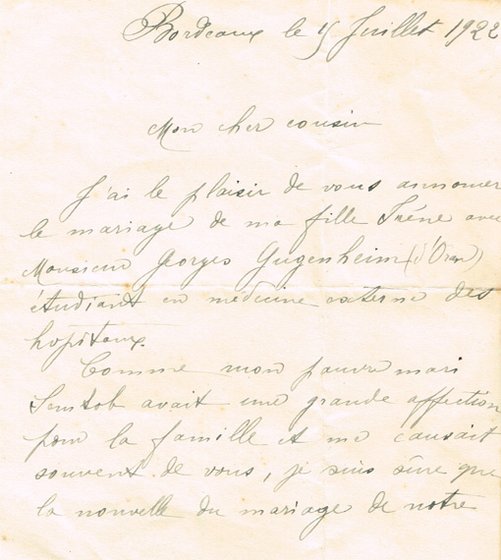 Bordeaux le 15 Juillet 1922
Mon cher cousin
J'ai le plaisir de vous annoncer
le mariage de ma fille Irène avec
Monsieur Georges Gugenheim (d'Oran)
étudiant en médecine externe des
hopitaux.
Comme mon pauvre mari
Semtob avait une grande affection
pour la famille et me causait
souvent de vous, je suis sûre que
la nouvelle du mariage de notre